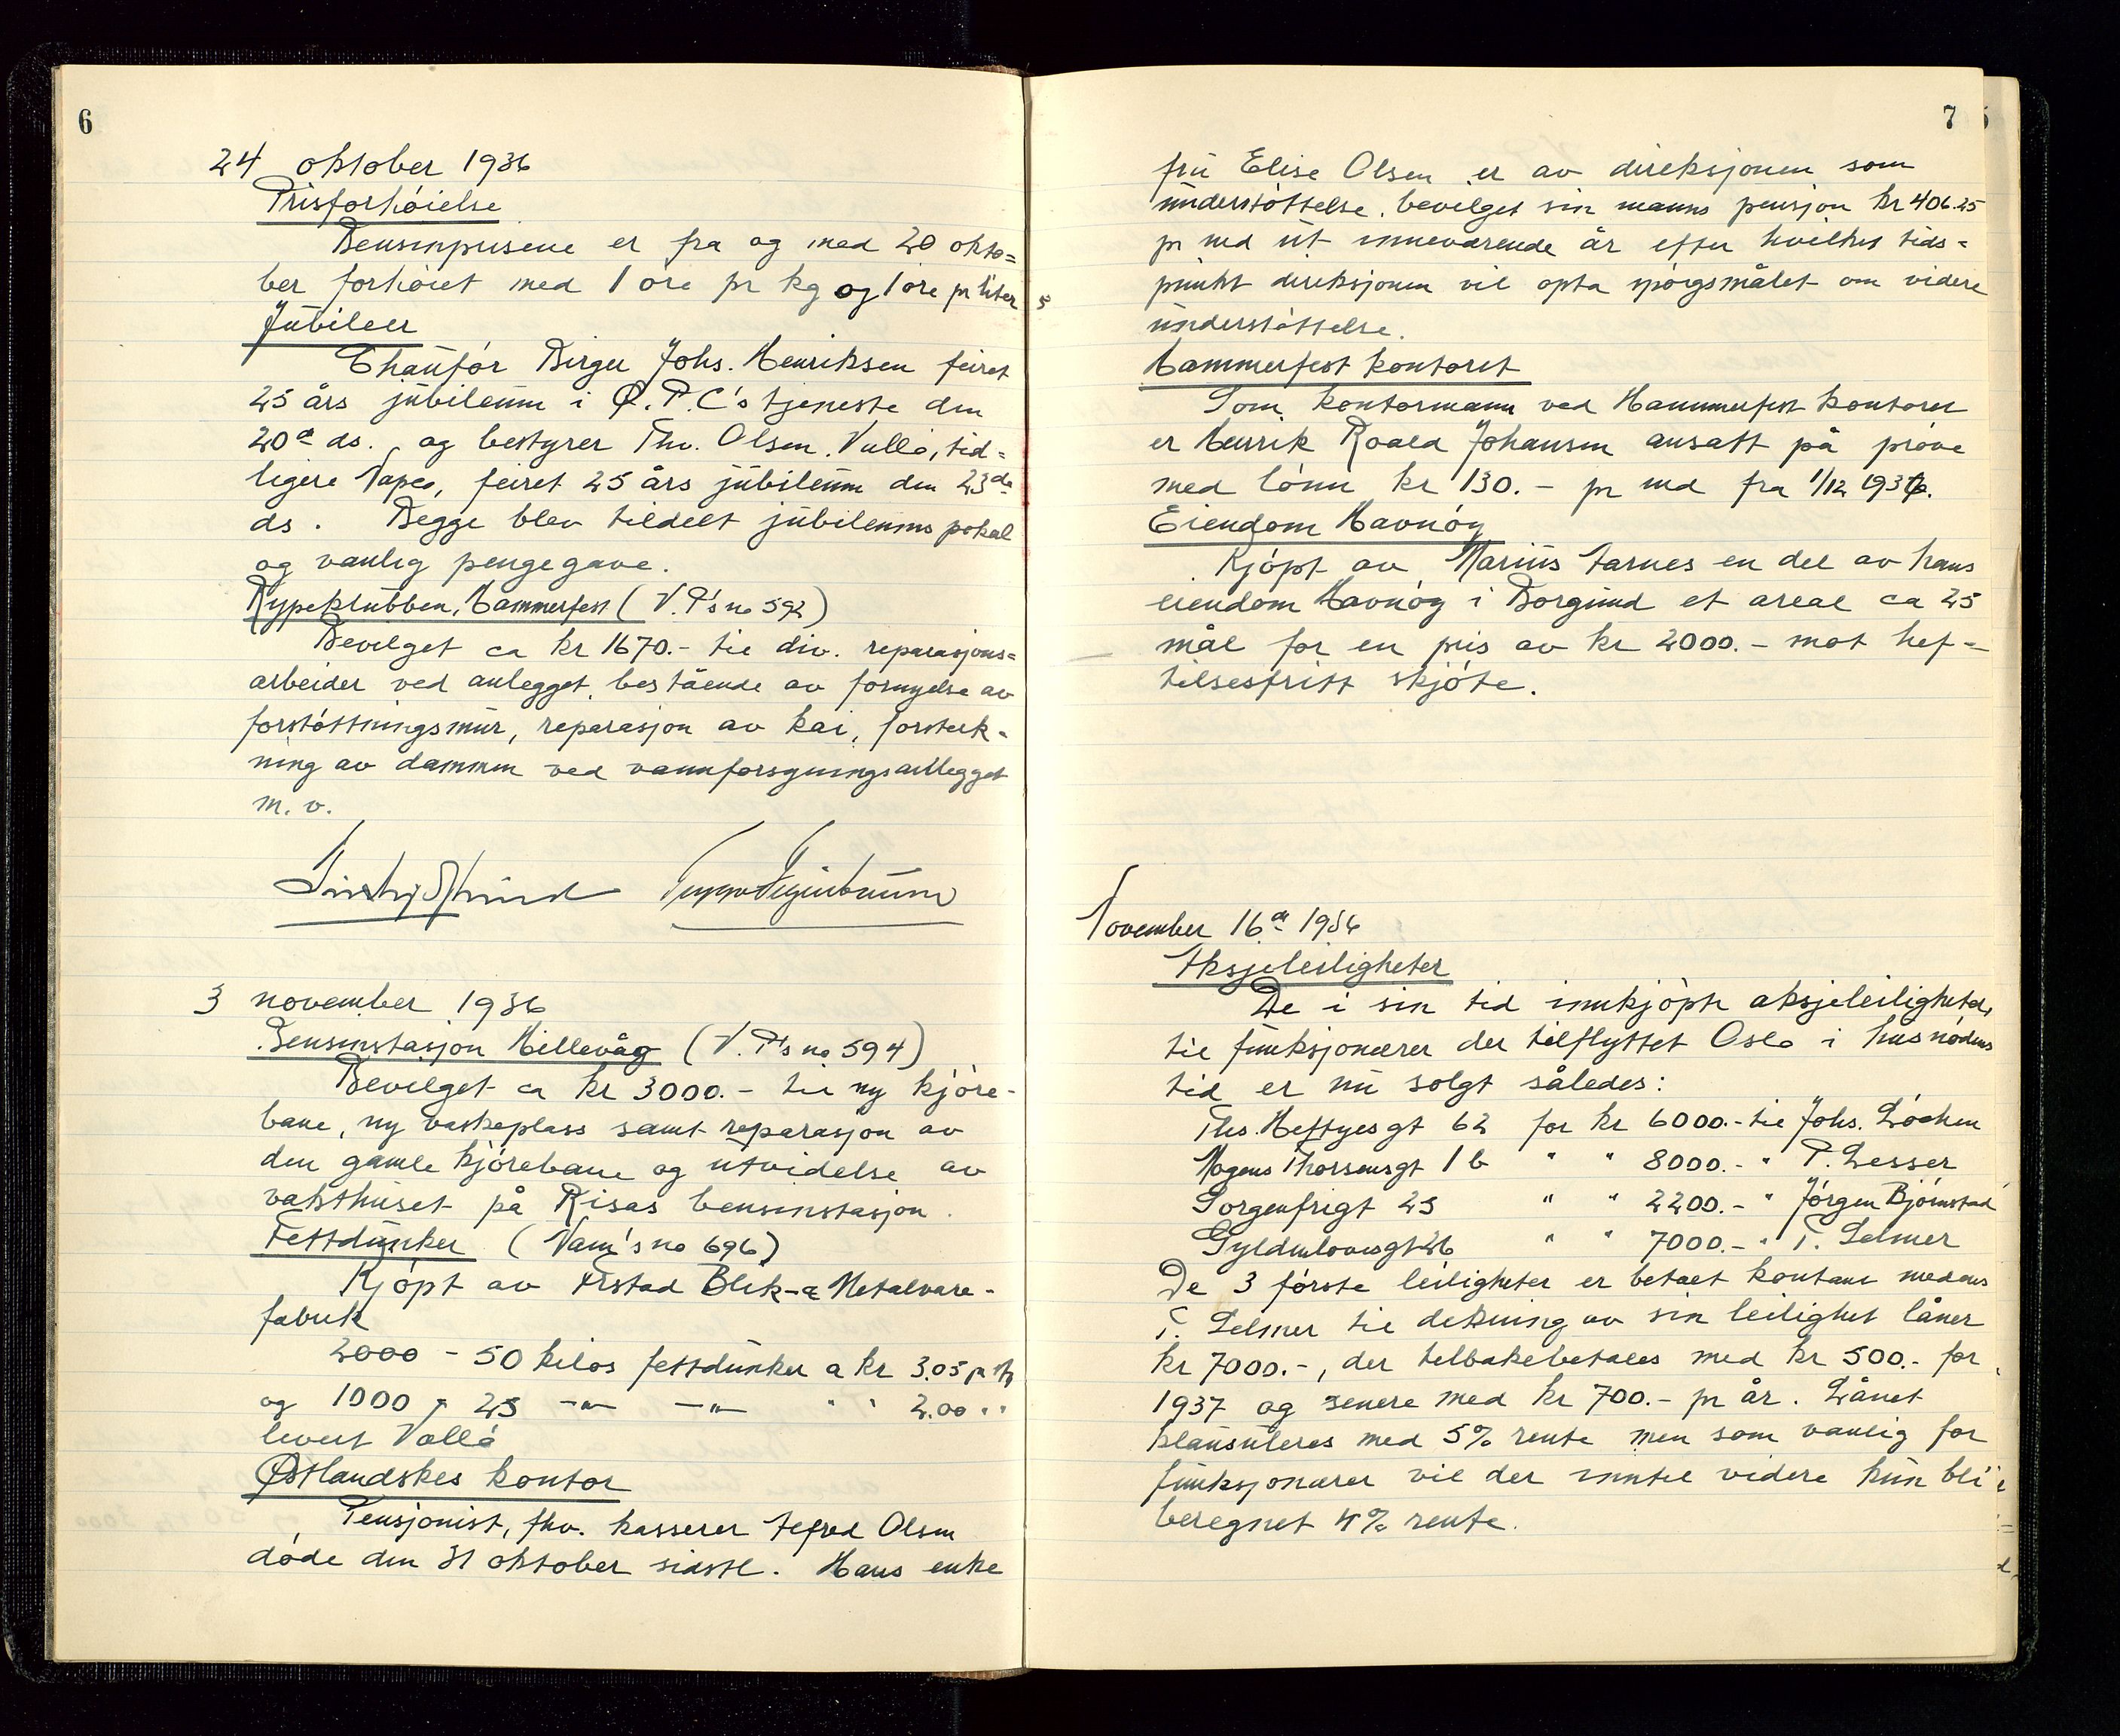 6
24 oktober 1936
Prisforhöielse
Bensinprisene er fra og med 20 okto=
ber forhöiet med 1 öre pr kg og 1 öre pr liter
Jubileer
Chauför Birger Johs. Henriksen feiret
25 års jubileum i Ø.P.C's tjeneste den
20de ds. og bestyrer Thv. Olsen, Vallö, tid=
ligere Vapco, feiret 25 års jubileum den 23de
ds. Begge blev tildelt jubileums pokal
og vanlig pengegave.
Rypeklubben, Hammerfest (V.P's no 592)
Bevilget ca kr 1670.- til div. reparasjons=
arbeider ved anlegget, bestående av fornyelse av
forstöttningsmur, reparasjon av kai, forsterk-
ning av dammen ved vannforsyningsanlegget
m. v.
3 november 1936
Bensinstasjon Hillevåg (V.P's no 594)
Bevilget ca kr 3000.- til ny kjöre-
bane, ny vaskeplass samt reparasjon av
den gamle kjörebane og utvidelse av
vakthuset på Risas bensinstasjon.
Fettdunker (Vam's no 696)
Kjöpt av Ørstad Blik- & Metalvare-
fabrik
2000 - 50 kilos fettdunker a kr 3.05 pr stk
og 1000 " 25 -"- -"- " " 2.00 " "
levert Vallö
Østlandskes kontor
Pensjonist, fhv. kasserer Alfred Olsen
döde den 31 oktober sidstl. Hans enke
7
fru Elise Olsen er av direksjonen som
understöttelse bevilget sin manns pensjon kr 406.25
pr md ut inneværende år efter hvilket tids=
punkt direksjonen vil opta spörgsmålet om videre
understöttelse.
Hammerfest kontoret
Som kontormann ved Hammerfest kontoret
er Henrik Roald Johansen ansatt på pröve
med lönn kr 130.- pr md fra 1/12 1936.
Eiendom Havnöy
Kjöpt av Marius Aarnes en del av hans
eiendom Havnöy i Borgund et areal ca 25
mål for en pris av kr 2000.- mot hef-
telsesfritt skjöte.
November 16de 1936
Aksjeleiligheter
De i sin tid innkjöpte aksjeleiligheter,
til funksjonærer der tilflyttet Oslo i husnödens
tid er nu solgt således:
Ths. Heftyesgt 62 for kr 6000.- til Johs. Löchen
Mogens Thorsensgt 1 b " " 8000.- " P. Lesser
Sorgenfrigt 25 " " 2200.- " Jörgen Björnstad
Gyldenlövesgt 26 " " 7000.- " T. Selmer
De 3 förste leiligheter er betalt kontant medens
T. Selmer til dekning av sin leilighet låner
kr 7000.-, der tilbakebetales med kr 500.- for
1937 og senere med kr 700.- pr år. Lånet
klausuleres med 5% rente men som vanlig for
funksjonærer vil der inntil videre kun bli
beregnet 4% rente.